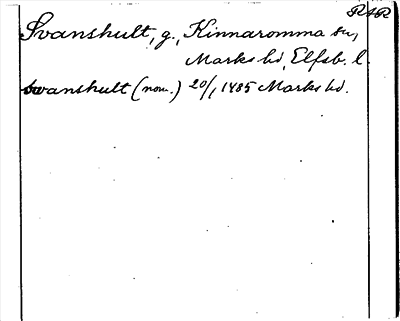 RAR
Svanshult, g., Kinnaromma sn,
Marks hd, Elfsb. l.
swanshult (nom.) 20/1 1485 Marks hd.